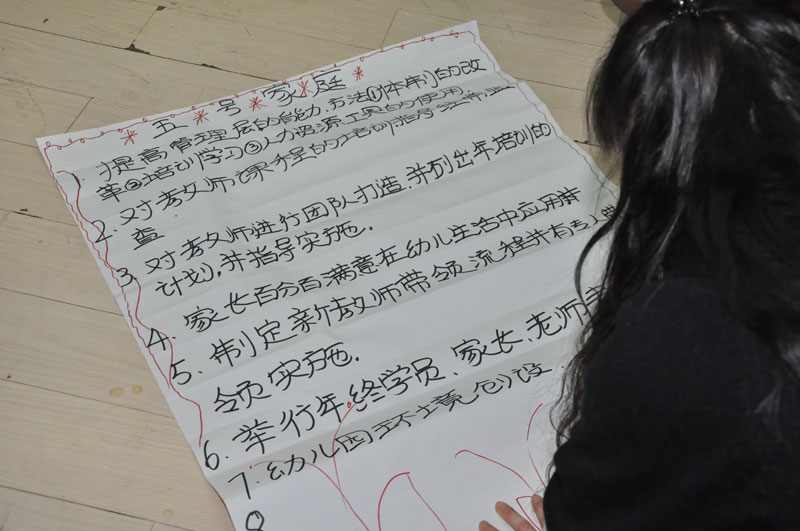 五号家庭
1. 提高管理层的能力.方法①体制的改
革②培训学习③人力资源工具的使用
2. 对教师课程的培训指导并监
查
3. 对教师进行团队打造.并列出年培训的
计划,并指导实施.
4. 家长百分百满意在幼儿生活中应用
5. 制定新教师带领流程并有专人
领实施.
6. 举行年终学员、家长、老师
7. 幼儿园环境创设.
8